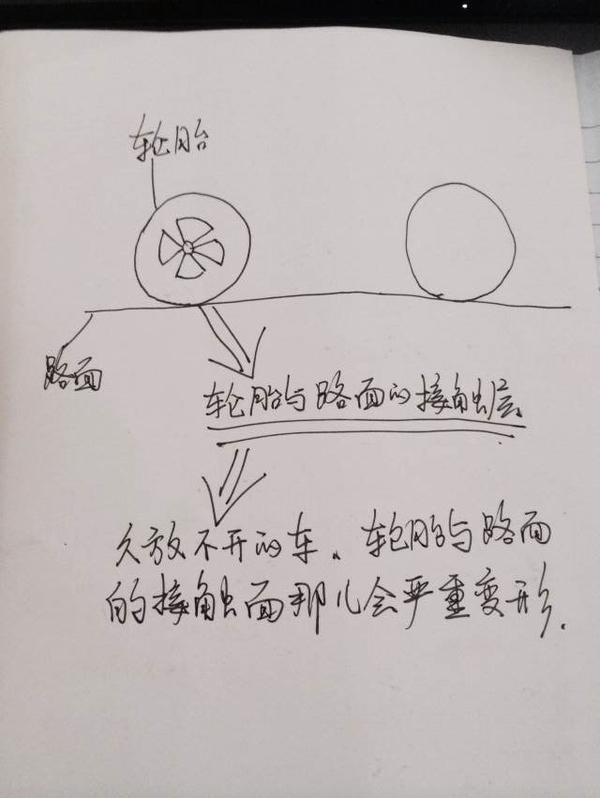 轮胎
路面
轮胎与路面的接触层
久放不开的车、轮胎与路面
的接触面那儿会严重变形.